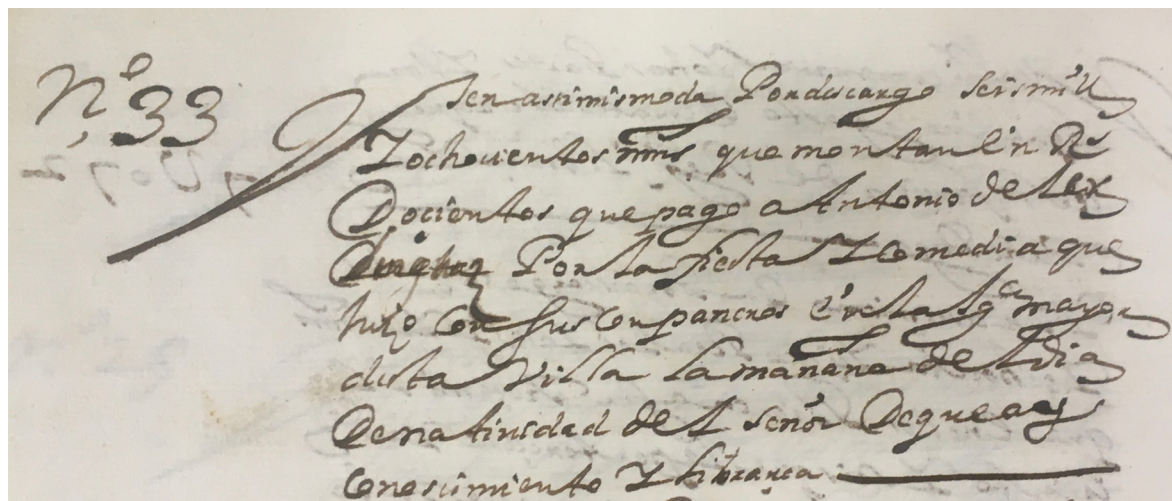 N.º 33
Iten assimismo da Por discargo seis mill
Y ochocientos mrs que montan En Rs
Docientos que pago a Antonio del ex
Por la fiesta Y comedia que
hizo Con sus conpaneros En la Yga mayor
desta Villa la mañana del dia
De natiuidad del señor De que ay
Conoscimiento Y librança